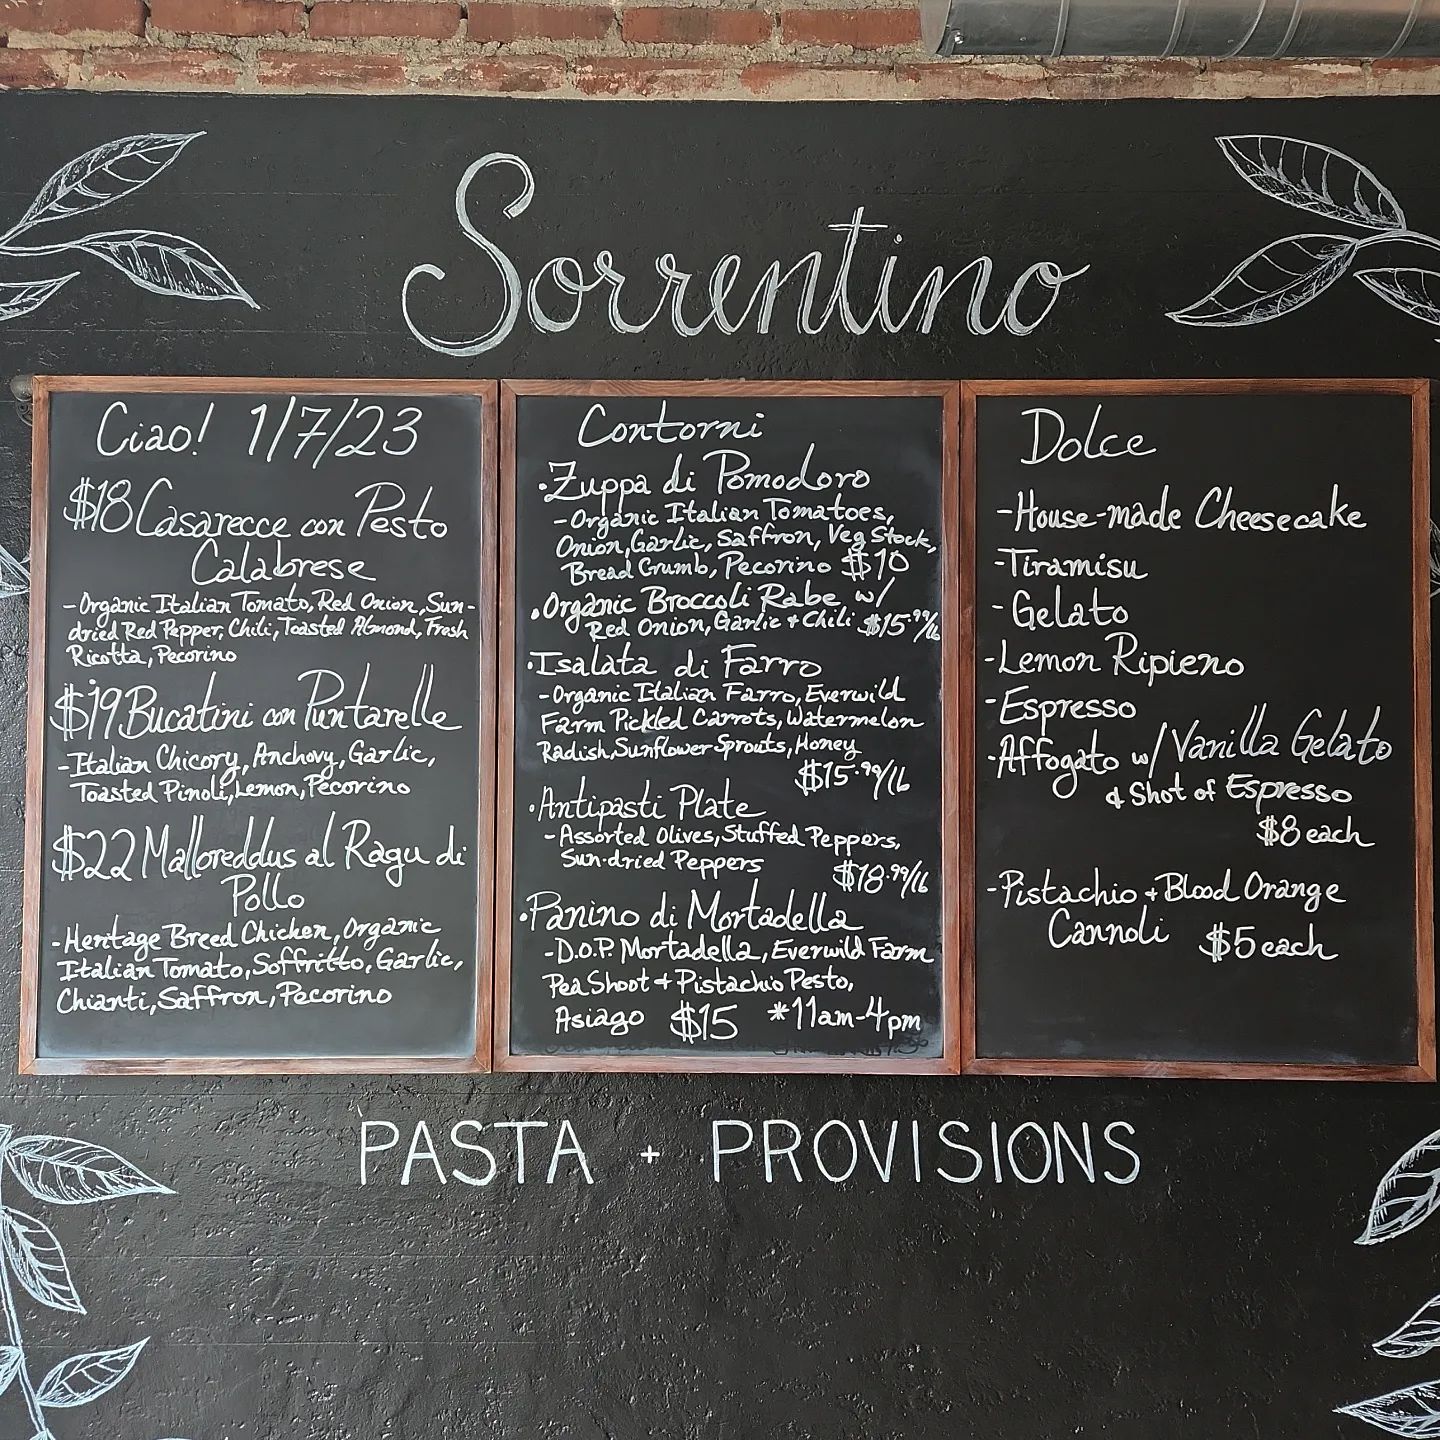 Sorrentino
Ciao! 1/7/23
$18 Casarecce con Pesto
Calabrese
-Organic Italian Tomato, Red Onion, Sun-
dried Red Pepper, Chili, Toasted Almond, Fresh
Ricotta, Pecorino
$19 Bucatini con Puntarelle
-Italian Chicory, Anchovy, Garlic,
Toasted Pinoli, Lemon, Pecorino
$22 Malloreddus al Ragu di
Pollo
-Heritage Breed Chicken, Organic
Italian Tomato, Soffritto, Garlic,
Chianti, Saffron, Pecorino
Contorni
•Zuppa di Pomodoro
-Organic Italian Tomatoes,
Onion, Garlic, Saffron, Veg Stock,
Bread Crumb, Pecorino $10
•Organic Broccoli Rabe w/
Red Onion, Garlic + Chili $15.99/lb
•Isalata di Farro
-Organic Italian Farro, Everwild
Farm Pickled Carrots, Watermelon
Radish, Sunflower Sprouts, Honey
$15.99/lb
•Antipasti Plate
-Assorted Olives, Stuffed Peppers,
Sun-dried Peppers
$18.99/lb
•Panino di Mortadella
-D.O.P. Mortadella, Everwild Farm
Pea Shoot + Pistachio Pesto,
Asiago $15 *11am-4pm
Dolce
-House-made Cheesecake
-Tiramisu
-Gelato
-Lemon Ripieno
-Espresso
-Affogato w/ Vanilla Gelato
& Shot of Espresso
$8 each
-Pistachio + Blood Orange
Cannoli $5 each
PASTA + PROVISIONS